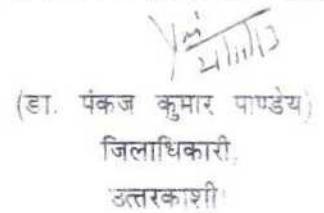 (डा. पंकज कुमार पाण्डेय)
जिलाधिकारी,
उत्तरकाशी।